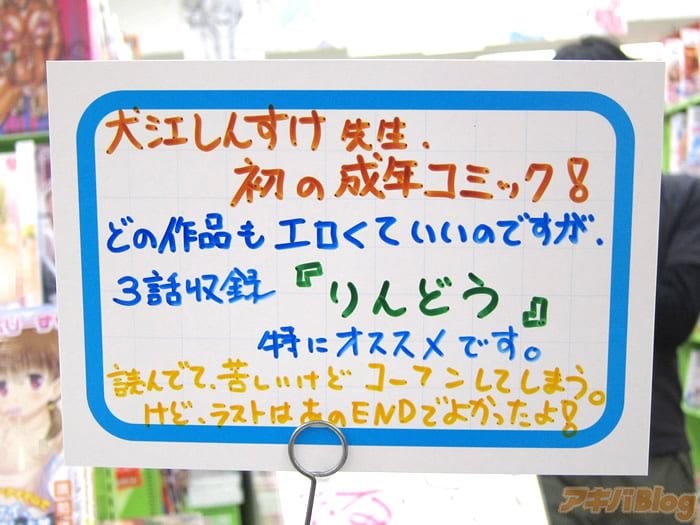 犬江しんすけ 先生、
初の成年コミック!
どの作品も エロくていいのですが、
3話収録『りんどう』
特にオススメです。
読んでて、苦しいけど コーフンしてしまう。
けど、ラストはあのENDでよかったよ!
アキバBlog